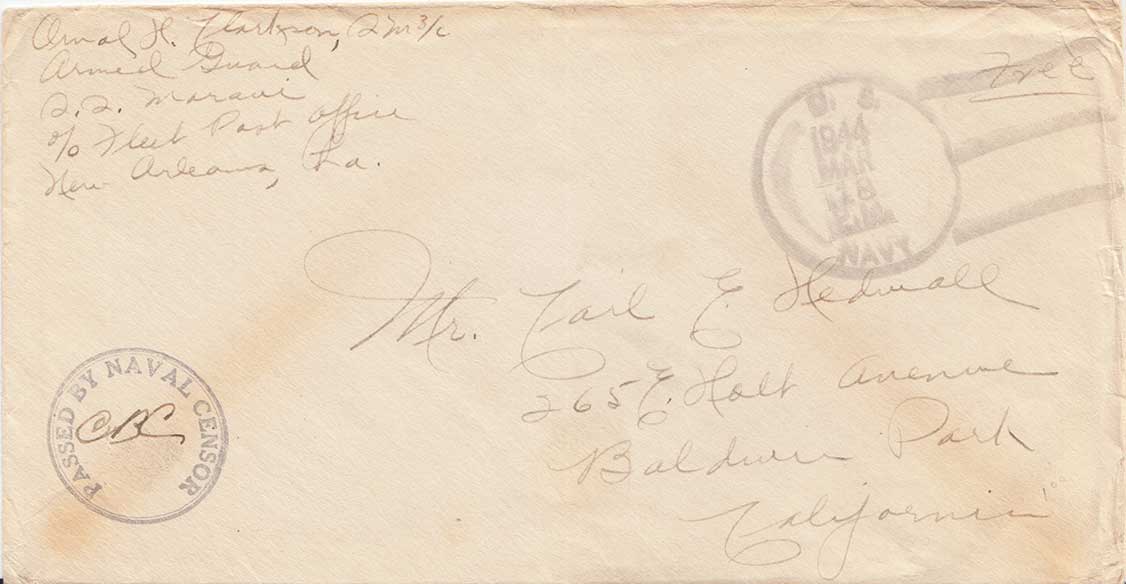 Orval H. Clarkson, SM 3/c
Armed Guard
S.S. Maravi
c/o Fleet Post Office
New Orleans, La.
Free
U. S.
1944
MAR
18
NAVY
Mr. Carl E. Hedwall
265 E. Holt Avenue
Baldwin Park
California
PASSED BY NAVAL CENSOR
CBC
1⁰⁰